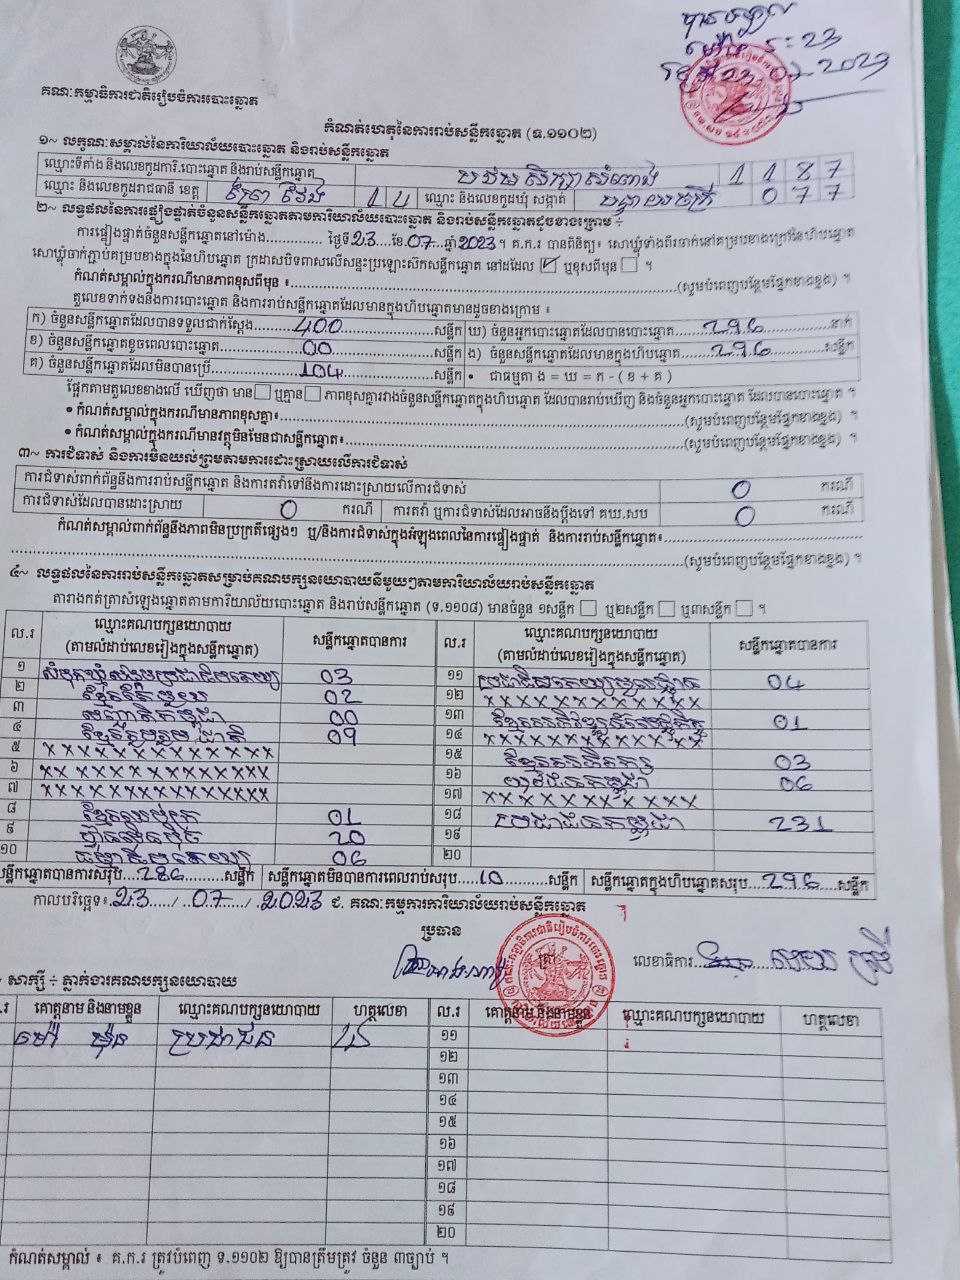 បានទទួល
ម៉ោង ១: 23
ថ្ងៃទី 23. 07. 2023
គណៈកម្មាធិការជាតិរៀបចំការបោះឆ្នោត
កំណត់ហេតុនៃការរាប់សន្លឹកឆ្នោត (ទ.១១០២)
១~ លក្ខណៈសម្គាល់នៃការិយាល័យបោះឆ្នោត និងរាប់សន្លឹកឆ្នោត
ឈ្មោះទីតាំង និងលេខកូដការិ.បោះឆ្នោត និងរាប់សន្លឹកឆ្នោត បឋមសិក្សាសំរោង 1 1 8 7
ឈ្មោះ និងលេខកូដរាជធានី ខេត្ត ព្រៃវែង 1 4 ឈ្មោះ និងលេខកូដឃុំ សង្កាត់ 0 7 7
២~ លទ្ធផលនៃការផ្ទៀងផ្ទាត់ចំនួនសន្លឹកឆ្នោតតាមការិយាល័យបោះឆ្នោត និងរាប់សន្លឹកឆ្នោតដូចខាងក្រោម ÷
ការផ្ទៀងផ្ទាត់ចំនួនសន្លឹកឆ្នោតនៅម៉ោង.............. ថ្ងៃទី23...ខែ.07....ឆ្នាំ2023។ គ.ក.រ បានពិនិត្យ៖ សោឃ្លុំទាំងពីរចាក់នៅគម្របខាងក្រៅនៃហិបឆ្នោត
សោឃ្លុំចាក់ភ្ជាប់គម្របខាងក្នុងនៃហិបឆ្នោត ក្រដាសបិទពាសលើសន្ទះប្រឡោះស៊កសន្លឹកឆ្នោត នៅដដែល ☑ ឬខុសពីមុន ☐ ។
កំណត់សម្គាល់ក្នុងករណីមានភាពខុសពីមុន ៖...........(សូមបំពេញបន្ថែមផ្នែកខាងខ្នង) ។
តួលេខទាក់ទងនឹងការបោះឆ្នោត និងការរាប់សន្លឹកឆ្នោតដែលមានក្នុងហិបឆ្នោតមានដូចខាងក្រោម ៖
ក) ចំនួនសន្លឹកឆ្នោតដែលបានទទួលជាក់ស្តែង.......400.......សន្លឹក ឃ) ចំនួនអ្នកបោះឆ្នោតដែលបានបោះឆ្នោត.....296.....នាក់
ខ) ចំនួនសន្លឹកឆ្នោតខូចពេលបោះឆ្នោត.......00.......សន្លឹក ង) ចំនួនសន្លឹកឆ្នោតដែលមានក្នុងហិបឆ្នោត.....296.....សន្លឹក
គ) ចំនួនសន្លឹកឆ្នោតដែលមិនបានប្រើ.......104.......សន្លឹក • ជាធម្មតា ង = ឃ = ក - ( ខ + គ )
ផ្អែកតាមតួលេខខាងលើ ឃើញថា មាន ☐ ឬគ្មាន ☐ ភាពខុសគ្នារវាងចំនួនសន្លឹកឆ្នោតក្នុងហិបឆ្នោត ដែលបានរាប់ឃើញ និងចំនួនអ្នកបោះឆ្នោត ដែលបានបោះឆ្នោត ។
• កំណត់សម្គាល់ក្នុងករណីមានភាពខុសគ្នា៖...........(សូមបំពេញបន្ថែមផ្នែកខាងខ្នង) ។
• កំណត់សម្គាល់ក្នុងករណីមានវត្ថុមិនមែនជាសន្លឹកឆ្នោត៖...........(សូមបំពេញបន្ថែមផ្នែកខាងខ្នង) ។
៣~ ការជំទាស់ និងការមិនយល់ព្រមតាមការដោះស្រាយលើការជំទាស់
ការជំទាស់ពាក់ព័ន្ធនឹងការរាប់សន្លឹកឆ្នោត និងការតវ៉ាទៅនឹងការដោះស្រាយលើការជំទាស់ 0 ករណី
ការជំទាស់ដែលបានដោះស្រាយ 0 ករណី ការតវ៉ា ឬការជំទាស់ដែលអាចនឹងប្តឹងទៅ គឃ.សប 0 ករណី
កំណត់សម្គាល់ពាក់ព័ន្ធនឹងភាពមិនប្រក្រតីផ្សេងៗ ឬ/និងការជំទាស់ក្នុងអំឡុងពេលនៃការផ្ទៀងផ្ទាត់ និងការរាប់សន្លឹកឆ្នោត៖...........
...........(សូមបំពេញបន្ថែមផ្នែកខាងខ្នង) ។
៤~ លទ្ធផលនៃការរាប់សន្លឹកឆ្នោតសម្រាប់គណបក្សនយោបាយនីមួយៗតាមការិយាល័យរាប់សន្លឹកឆ្នោត
តារាងកត់ត្រាសំឡេងឆ្នោតតាមការិយាល័យបោះឆ្នោត និងរាប់សន្លឹកឆ្នោត (ទ.១១០៨) មានចំនួន ១សន្លឹក ☐ ឬ២សន្លឹក ☐ ឬ៣សន្លឹក ☐ ។
ល.រ ឈ្មោះគណបក្សនយោបាយ (តាមលំដាប់លេខរៀងក្នុងសន្លឹកឆ្នោត) សន្លឹកឆ្នោតបានការ ល.រ ឈ្មោះគណបក្សនយោបាយ (តាមលំដាប់លេខរៀងក្នុងសន្លឹកឆ្នោត) សន្លឹកឆ្នោតបានការ
១ សំបុកឃ្មុំសង្គមប្រជាធិបតេយ្យ 03 ១១ 04
២ ខ្មែរតែមួយ 02 ១២ XXXXXXXXXXXX
៣ 00 ១៣ 01
៤ ខ្មែររួបរួមជាតិ 09 ១៤ XXXXXXXXXXXX
៥ XXXXXXXXXXXXX ១៥ 03
៦ XXXXXXXXXXXXX ១៦ យុវជនកម្ពុជា 06
៧ XXXXXXXXXXXXXX ១៧ XXXXXXXXXX
៨ 01 ១៨ ប្រជាជនកម្ពុជា 231
៩ ហ៊្វុនស៊ិនប៉ិច 20 ១៩
១០ ធម្មាធិបតេយ្យ 06 ២០
សន្លឹកឆ្នោតបានការសរុប...286.......សន្លឹក សន្លឹកឆ្នោតមិនបានការពេលរាប់សរុប.....10.......សន្លឹក សន្លឹកឆ្នោតក្នុងហិបឆ្នោតសរុប...296...សន្លឹក
កាលបរិច្ឆេទ៖.23...../..07...../..2023 ជ. គណៈកម្មការការិយាល័យរាប់សន្លឹកឆ្នោត
ប្រធាន
លេខាធិការ
សាក្សី ÷ ភ្នាក់ងារគណបក្សនយោបាយ
ល.រ គោត្តនាម និងនាមខ្លួន ឈ្មោះគណបក្សនយោបាយ ហត្ថលេខា ល.រ គោត្តនាម និងនាមខ្លួន ឈ្មោះគណបក្សនយោបាយ ហត្ថលេខា
ប្រជាជន ១១
១២
១៣
១៤
១៥
១៦
១៧
១៨
១៩
២០
កំណត់សម្គាល់ ៖ គ.ក.រ ត្រូវបំពេញ ទ.១១០២ ឱ្យបានត្រឹមត្រូវ ចំនួន ៣ច្បាប់ ។